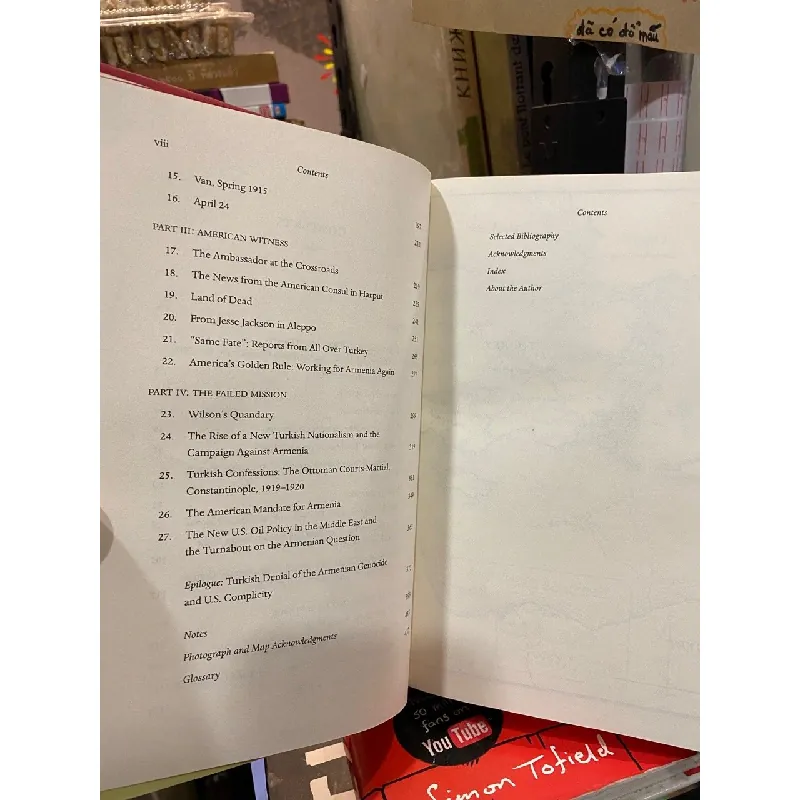 đã có đồ mẫu
КНИЖ
viii
Contents
15. Van, Spring 1915
16. April 24
PART III: AMERICAN WITNESS
17. The Ambassador at the Crossroads
18. The News from the American Consul in Harput
19. Land of Dead
20. From Jesse Jackson in Aleppo
21. "Same Fate": Reports from All Over Turkey
22. America's Golden Rule: Working for Armenia Again
PART IV: THE FAILED MISSION
23. Wilson's Quandary
24. The Rise of a New Turkish Nationalism and the
Campaign Against Armenia
25. Turkish Confessions: The Ottoman Courts-Martial,
Constantinople, 1919–1920
26. The American Mandate for Armenia
27. The New U.S. Oil Policy in the Middle East and
the Turnabout on the Armenian Question
Epilogue: Turkish Denial of the Armenian Genocide
and U.S. Complicity
Notes
Photograph and Map Acknowledgments
Glossary
Contents
Selected Bibliography
Acknowledgments
Index
About the Author
fans on
YouTube
Simon Tofield